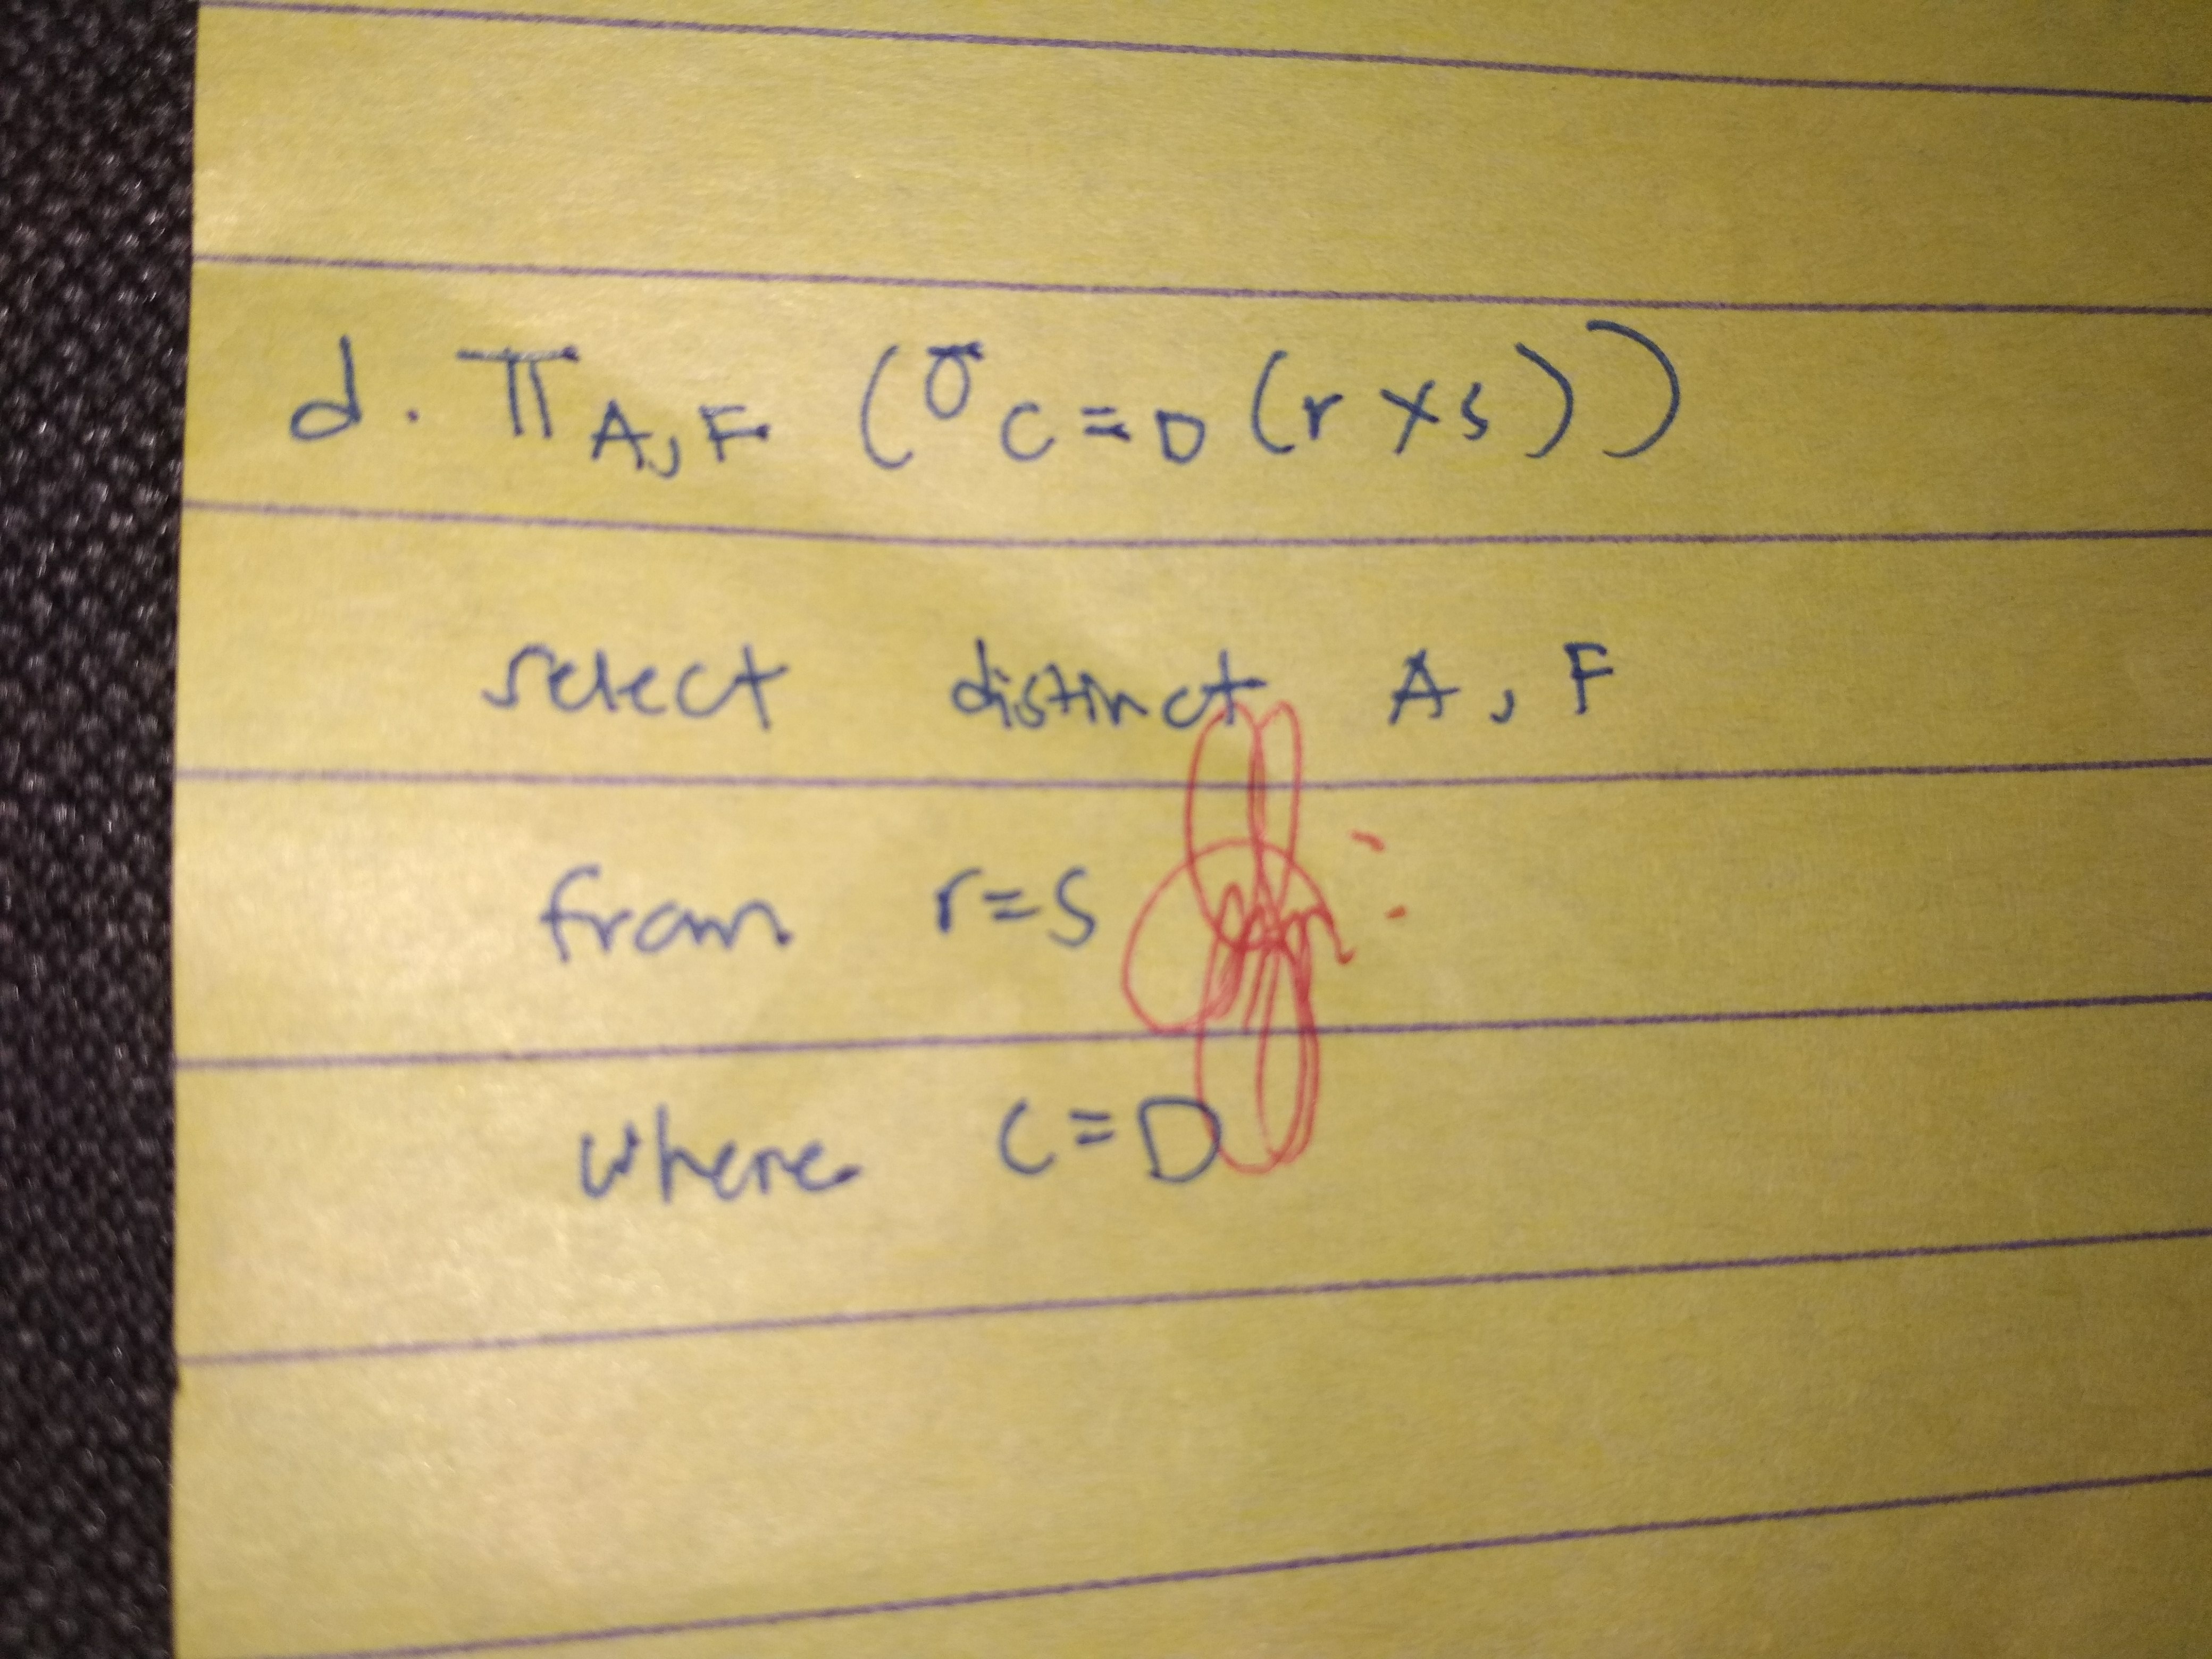 d. π A,F (σ C=D (r×s))
select distinct A, F
from r=s
where C=D